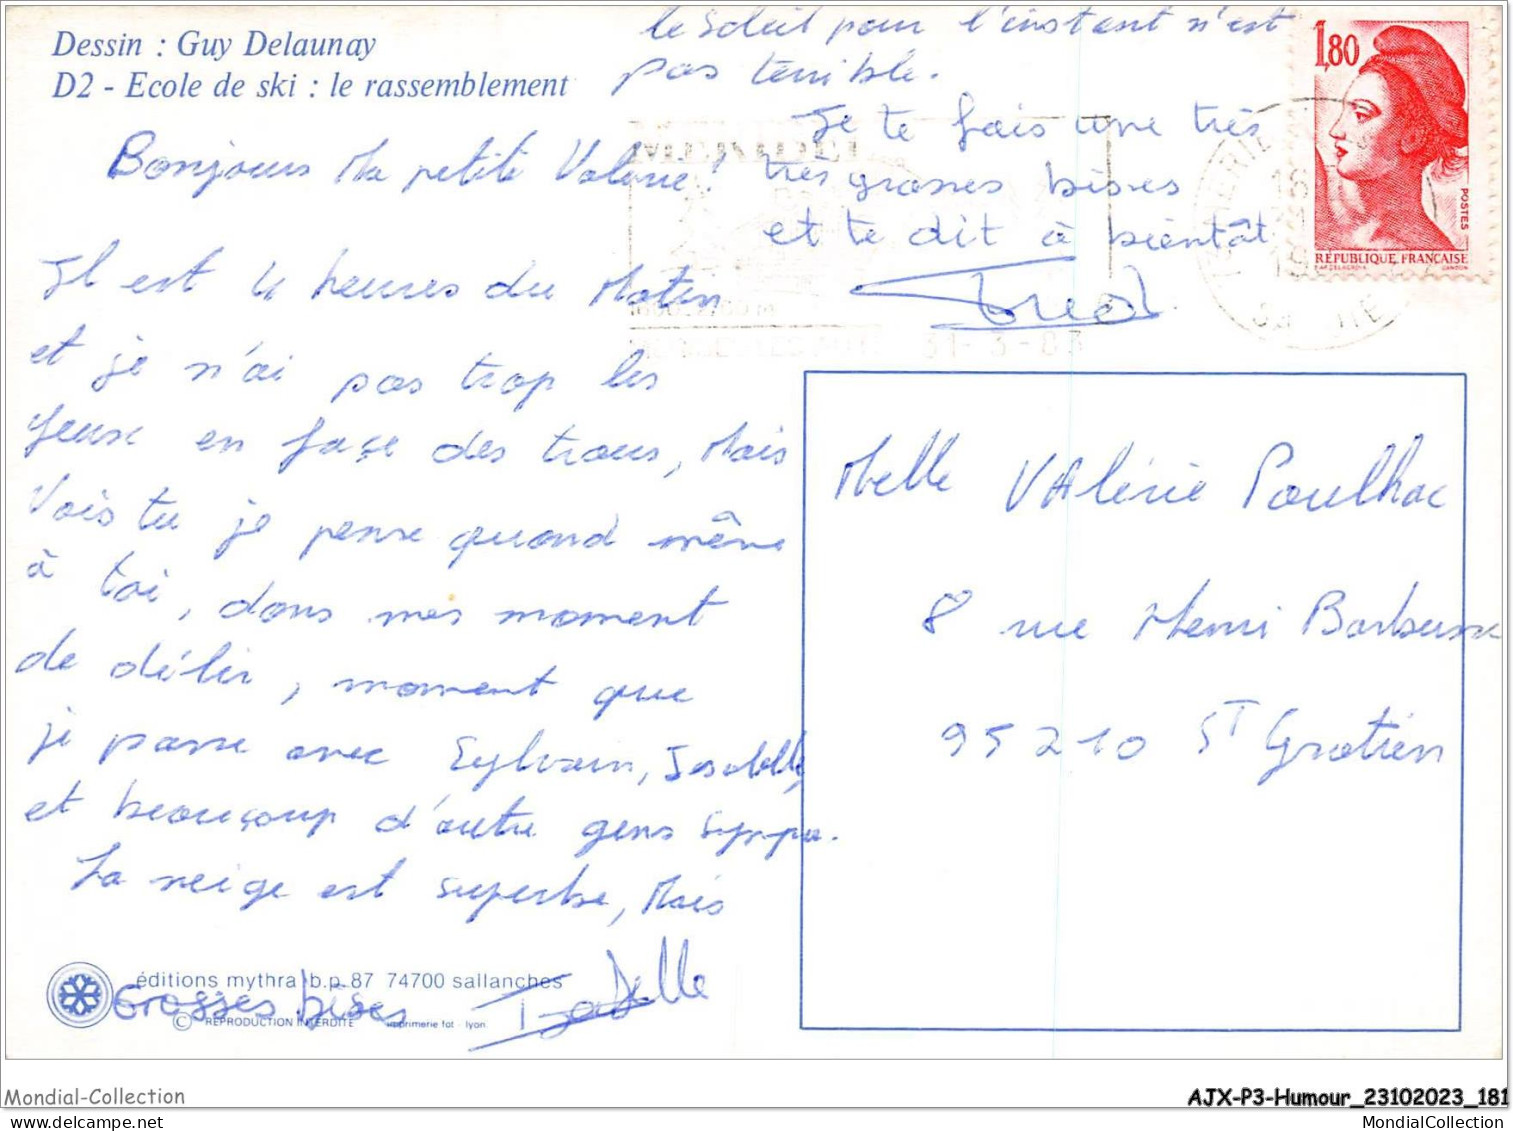 Dessin : Guy Delaunay
D2 - Ecole de ski : le rassemblement
Bonjour Ma petite Valérie !
Il est 4 heures du Matin
et je n'ai pas trop les
yeux en façe des trous, Mais
Vois tu je pense quand même
à toi, dans mes moment
de délir, moment que
je passe avec Sylvain, Isabelle,
et beauçoup d'autre gens sympa.
La neige est superbe, Mais
le Soleil pour l'instant n'est
pas terrible.
Je te fais une très
très grosses bises
et te dit à bientôt
Grosses bises Isabelle
éditions mythra b.p. 87 74700 sallanches
© REPRODUCTION INTERDITE imprimerie fot - lyon
1,80
POSTES
RÉPUBLIQUE FRANÇAISE
MERIBEL
31-3-83
Melle VAlérie Poulhac
8 rue Henri Barbusse
95210 ST Gratien
Mondial-Collection
AJX-P3-Humour_23102023_181
MondialCollection